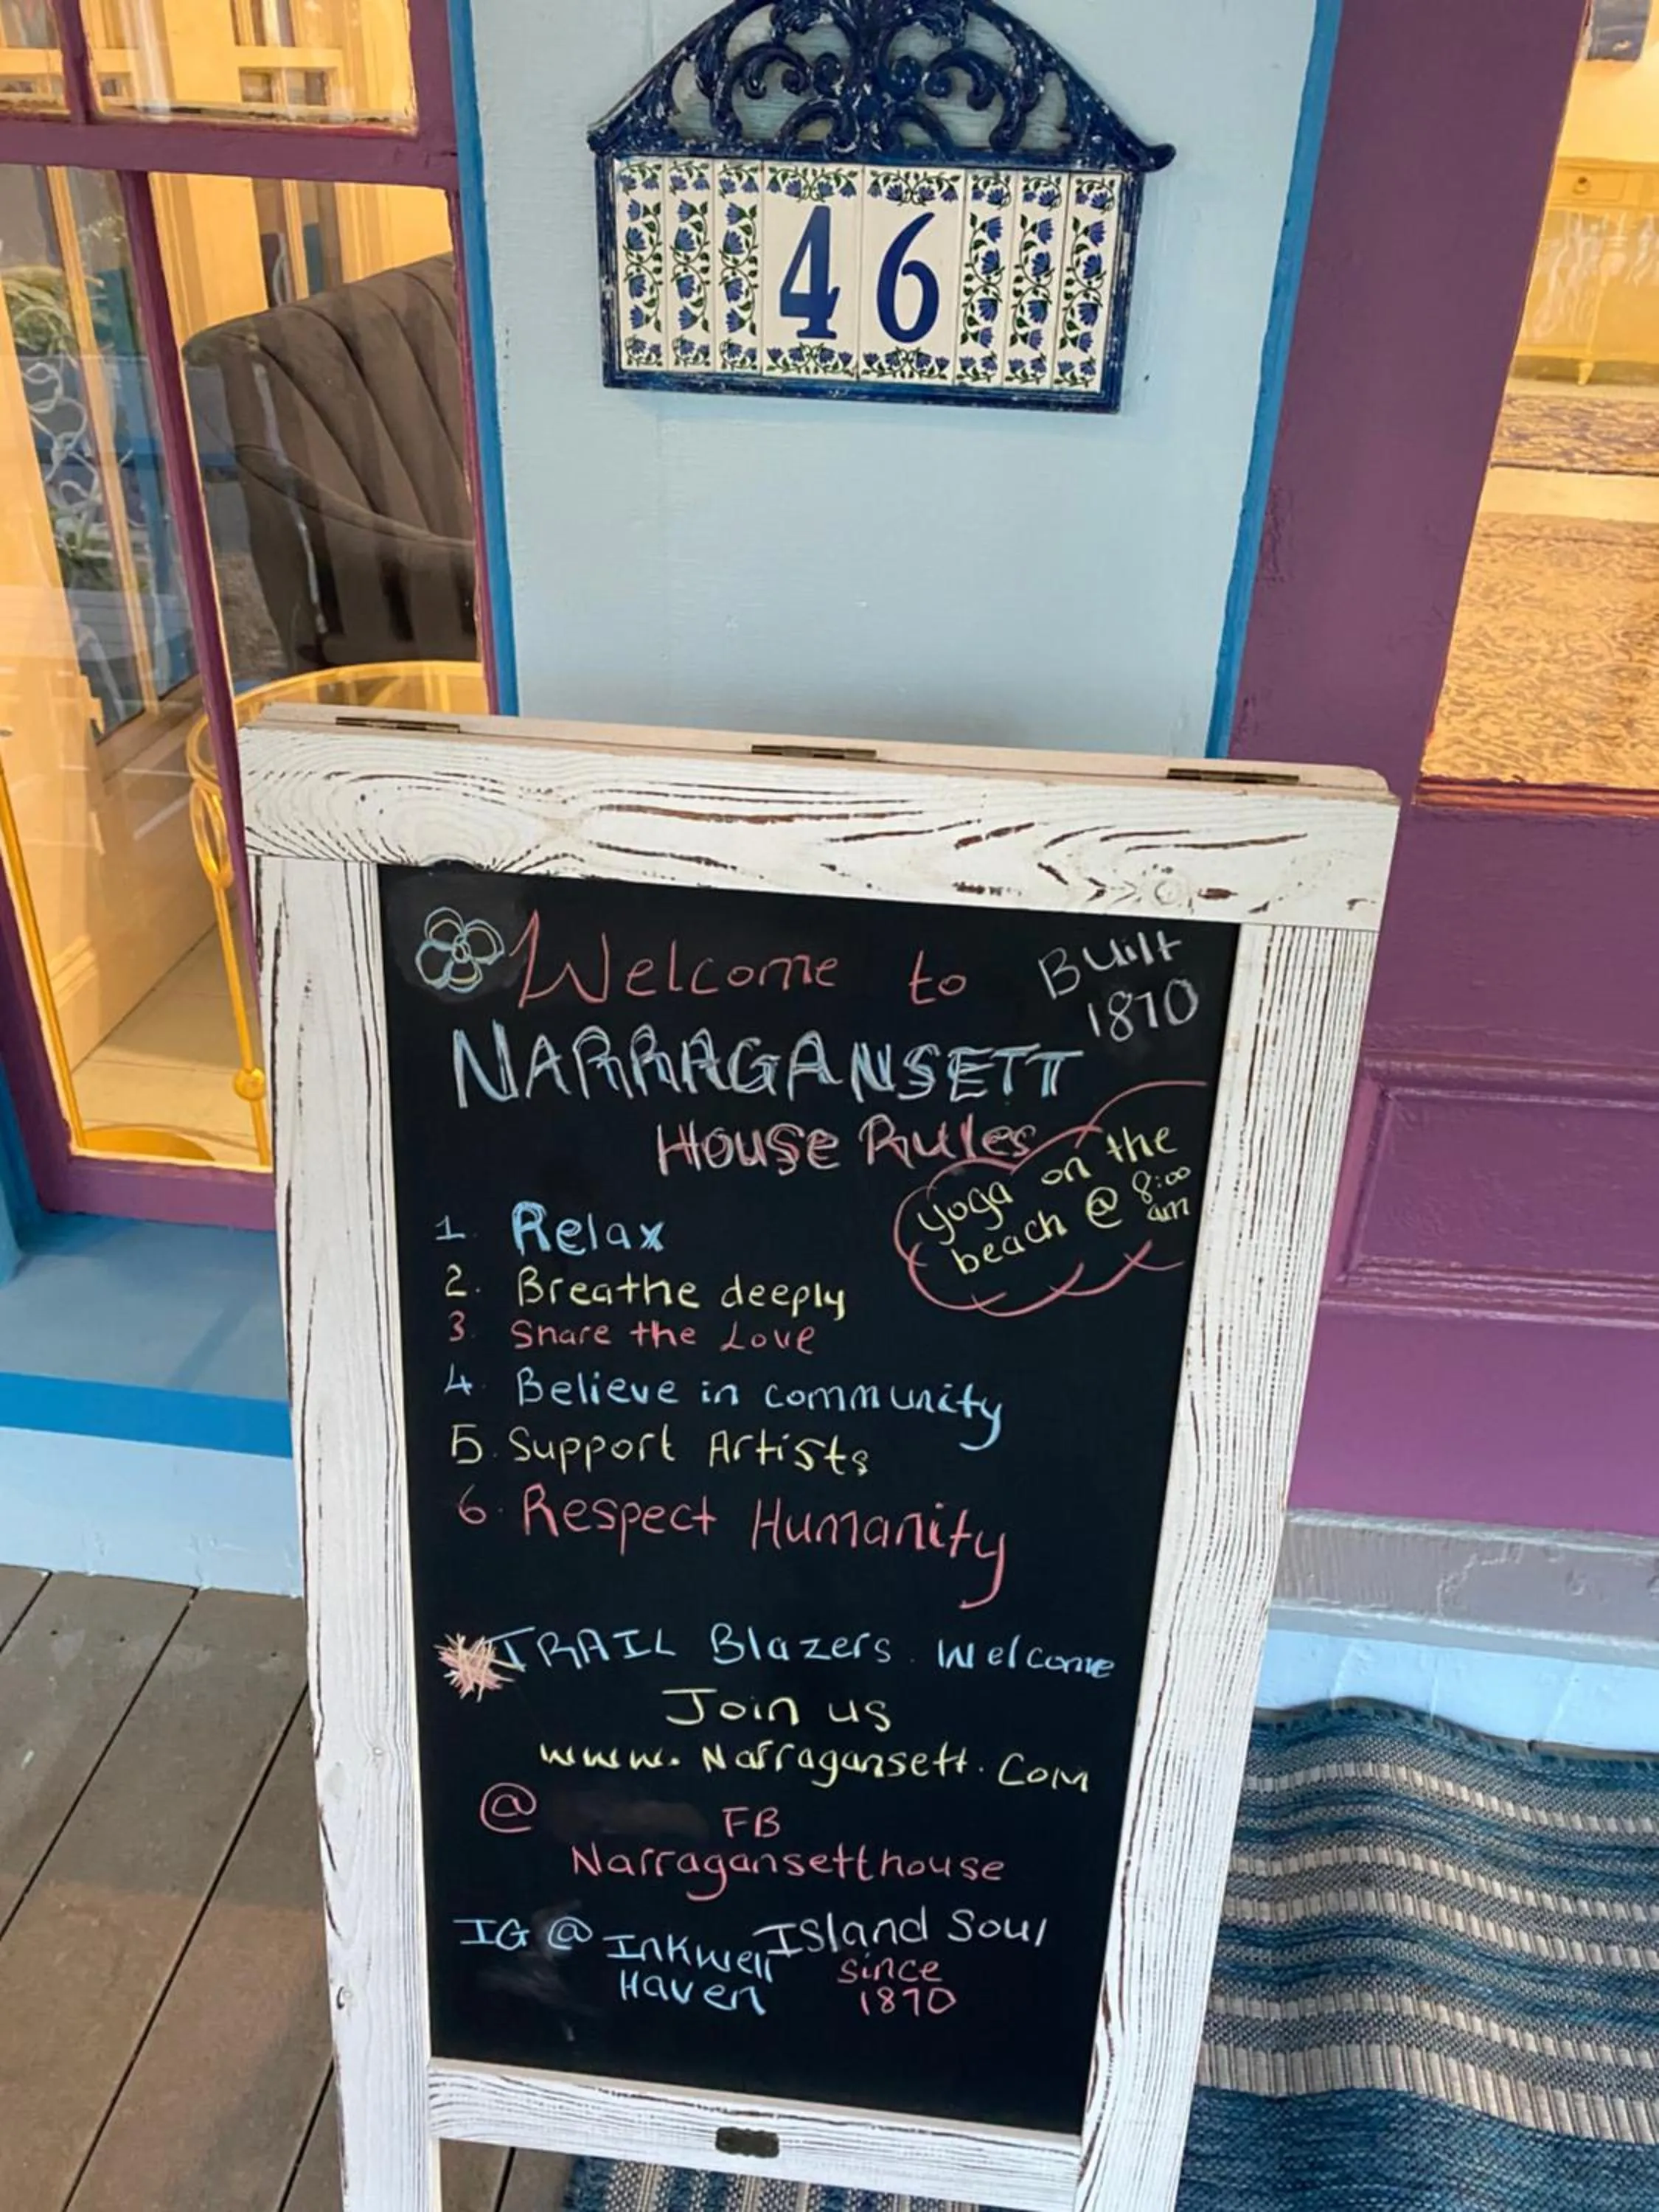 46
Welcome to
Built
1870
NARRAGANSETT
House Rules
yoga on the
beach @ 8:00
am
1. Relax
2. Breathe deeply
3. Share the Love
4. Believe in community
5. Support Artists
6. Respect Humanity
TRAIL Blazers. Welcome
Join us
www.Narragansett.com
@ FB
Narragansetthouse
IG @ Inkwell
Haven
Island Soul
since
1870